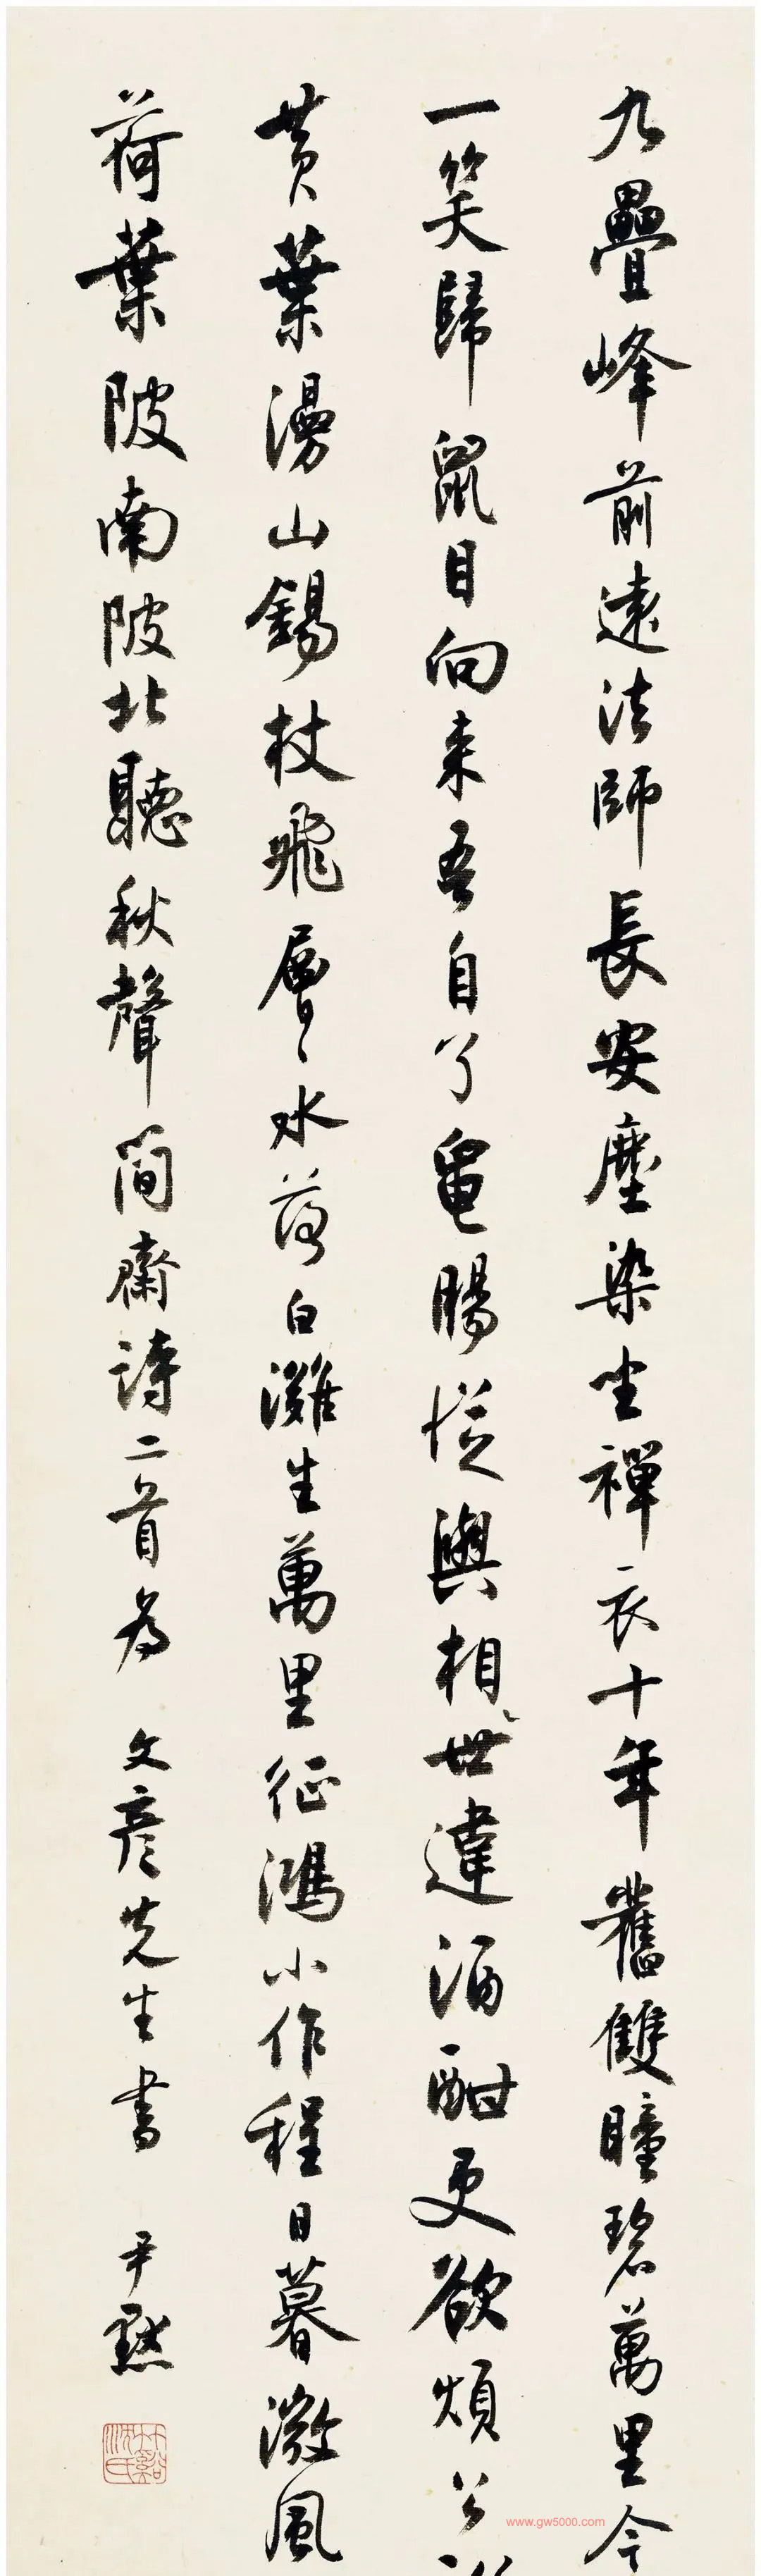 九疊峰前遠法師長安塵染坐禪衣十年舊雙瞳碧萬里今
一笑歸鼠目向來吾自了龜腸從與相世違酒酣更欲煩公
黄葉漫山錫杖飛層〻水落白灘生萬里征鴻小作程日暮微風
荷葉陂南陂北聽秋聲簡齋詩二首為 文彦先生書 尹默
竹谿沈氏
www.gw5000.com